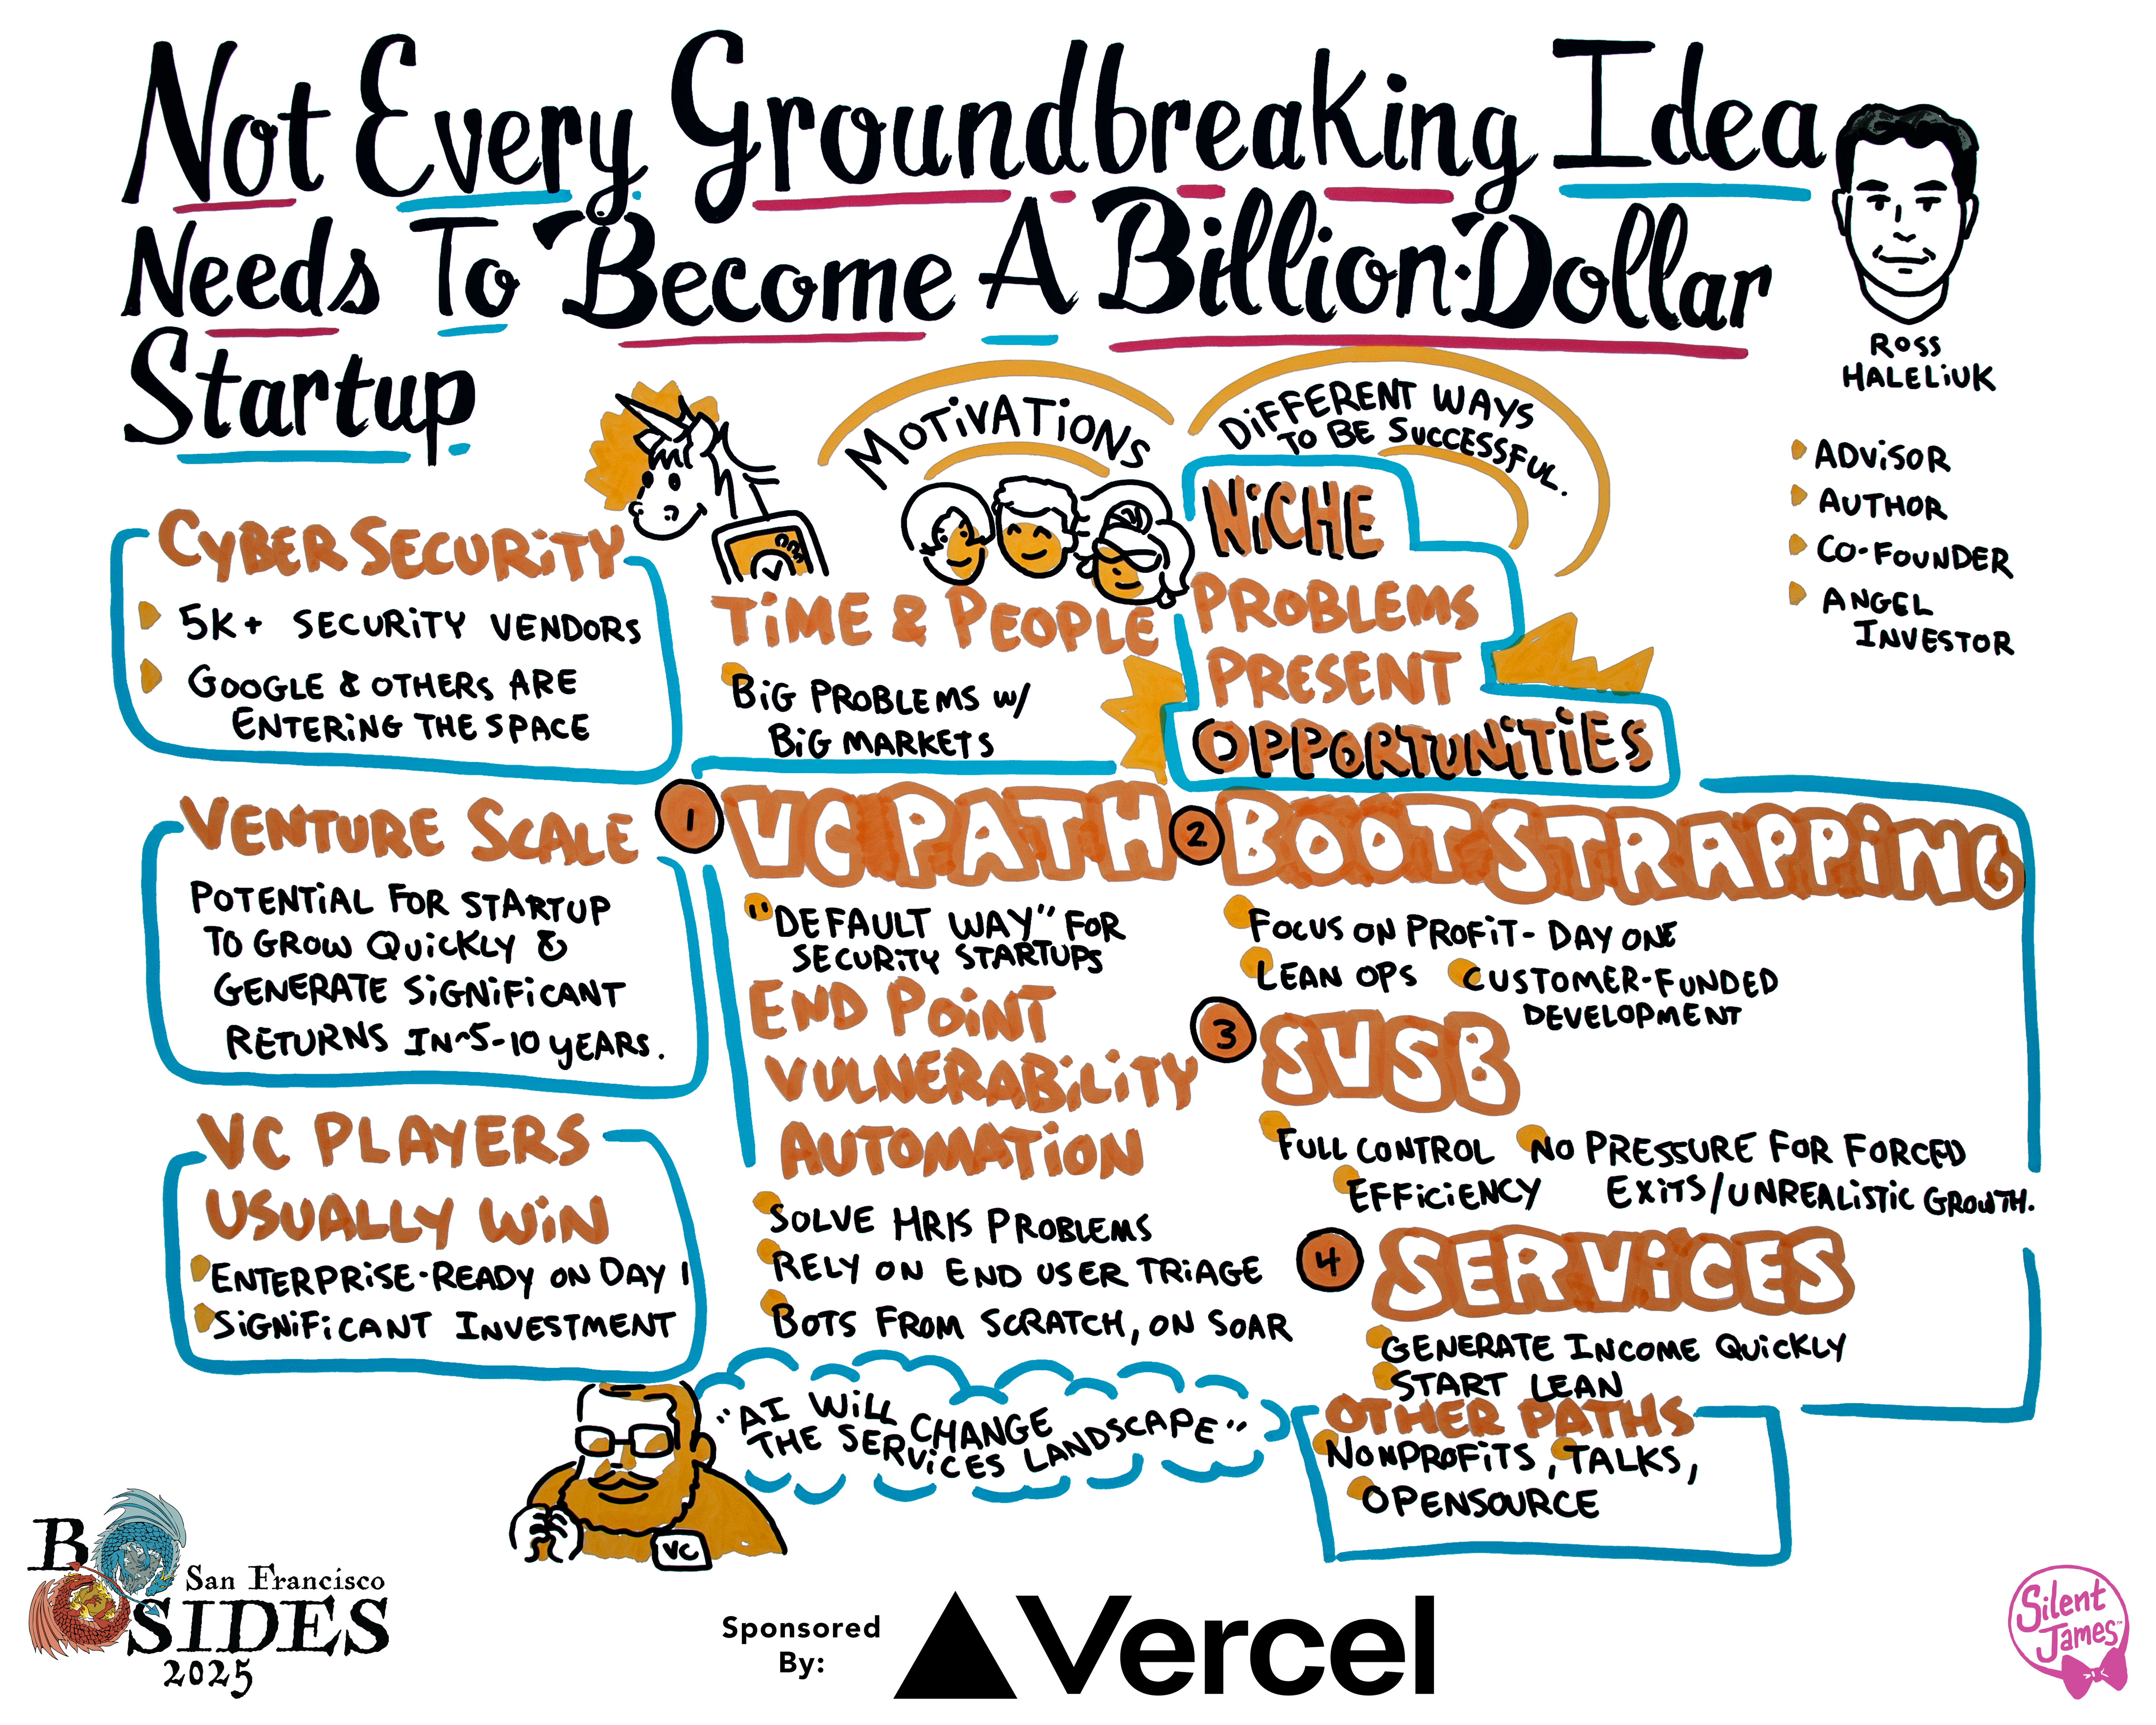 Not Every Groundbreaking Idea
Needs To Become A Billion-Dollar
Startup
ROSS
HALELIUK
ADVISOR
AUTHOR
CO-FOUNDER
ANGEL
INVESTOR
CYBER SECURITY
5K+ SECURITY VENDORS
GOOGLE & OTHERS ARE
ENTERING THE SPACE
VENTURE SCALE
POTENTIAL FOR STARTUP
TO GROW QUICKLY &
GENERATE SIGNIFICANT
RETURNS IN ~5-10 YEARS.
VC PLAYERS
USUALLY WIN
ENTERPRISE-READY ON DAY 1
SIGNIFICANT INVESTMENT
MOTIVATIONS
TIME & PEOPLE
BIG PROBLEMS W/
BIG MARKETS
DIFFERENT WAYS
TO BE SUCCESSFUL.
NICHE
PROBLEMS
PRESENT
OPPORTUNITIES
1 VC PATH
"DEFAULT WAY" FOR
SECURITY STARTUPS
END POINT
VULNERABILITY
AUTOMATION
SOLVE HRIS PROBLEMS
RELY ON END USER TRIAGE
BOTS FROM SCRATCH, ON SOAR
2 BOOTSTRAPPING
FOCUS ON PROFIT - DAY ONE
LEAN OPS
CUSTOMER-FUNDED
DEVELOPMENT
3 SVSB
FULL CONTROL
EFFICIENCY
NO PRESSURE FOR FORCED
EXITS/UNREALISTIC GROWTH.
4 SERVICES
GENERATE INCOME QUICKLY
START LEAN
OTHER PATHS
NONPROFITS, TALKS,
OPENSOURCE
"AI WILL CHANGE
THE SERVICES LANDSCAPE"
VC
BSIDES
San Francisco
2025
Sponsored
By:
Vercel
Silent
James™